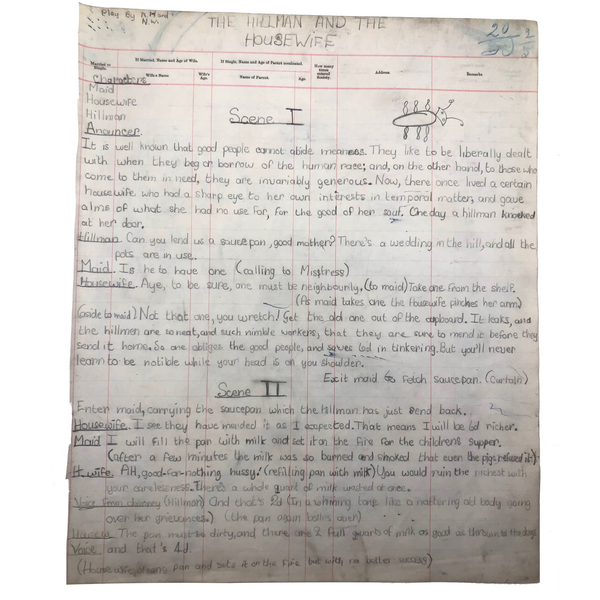 Play By N.H and
N.W.
THE HILLMAN AND THE
HOUSEWIFE
20 3/5
Married or Single.
If Married, Name and Age of Wife.
Wife's Name
Wife's Age.
If Single, Name and Age of Parent nominated.
Name of Parent
Age
How many times entered Society.
Address
Remarks
Characters
Maid
Housewife
Hillman
Scene I
Anouncer.
It is well known that good people cannot abide meaness. They like to be liberally dealt
with when they beg or borrow of the human race; and, on the other hand, to those who
come to them in need, they are invariably generous. Now, there once lived a certain
housewife who had a sharp eye to her own interests in temporal matter, and gave
alms of what she had no use for, for the good of her soul. One day a hillman knocked
at her door.
Hillman. Can you lend us a saucepan, good mother? There's a wedding in the hill, and all the
pots are in use.
Maid. Is he to have one (calling to Misstress)
Housewife. Aye, to be sure, one must be neighbourly, (to maid) Take one from the shelf.
(As maid takes one the Housewife pinches her arm)
(aside to maid) Not that one, you wretch! Get the old one out of the cupboard. It leaks, and
the hillmen are so neat, and such nimble workers, that they are sure to mend it before they
send it home. So one obliges the good people, and saves 6d in tinkering. But you'll never
learn to be notible while your head is on you shoulder.
Exit maid to fetch saucepan. (Curtain)
Scene II
Enter maid, carrying the saucepan which the Hillman has just send back.
Housewife. I see they have mended it as I expected. That means I will be 6d richer.
Maid I will fill the pan with milk and set it on the fire for the childrens supper.
(after a few minutes the milk was so burned and smoked that even the pigs refused it)
H. wife. AH, good-for-nothing hussy! (refilling pan with milk) You would ruin the richest with
your carelesness. There's a whole quart of milk wasted at once.
Voice from chimney (Hillman) And that's 2d (In a whining tone like a nattering old body going
over her grievances.) (the pan again boiles over)
The pan must be dirty, and there are 2 full quarts of milk as good as thrown to the dogs
Voice and that's 4d.
(Housewife cleans pan and sets it on the fire but with no better success)